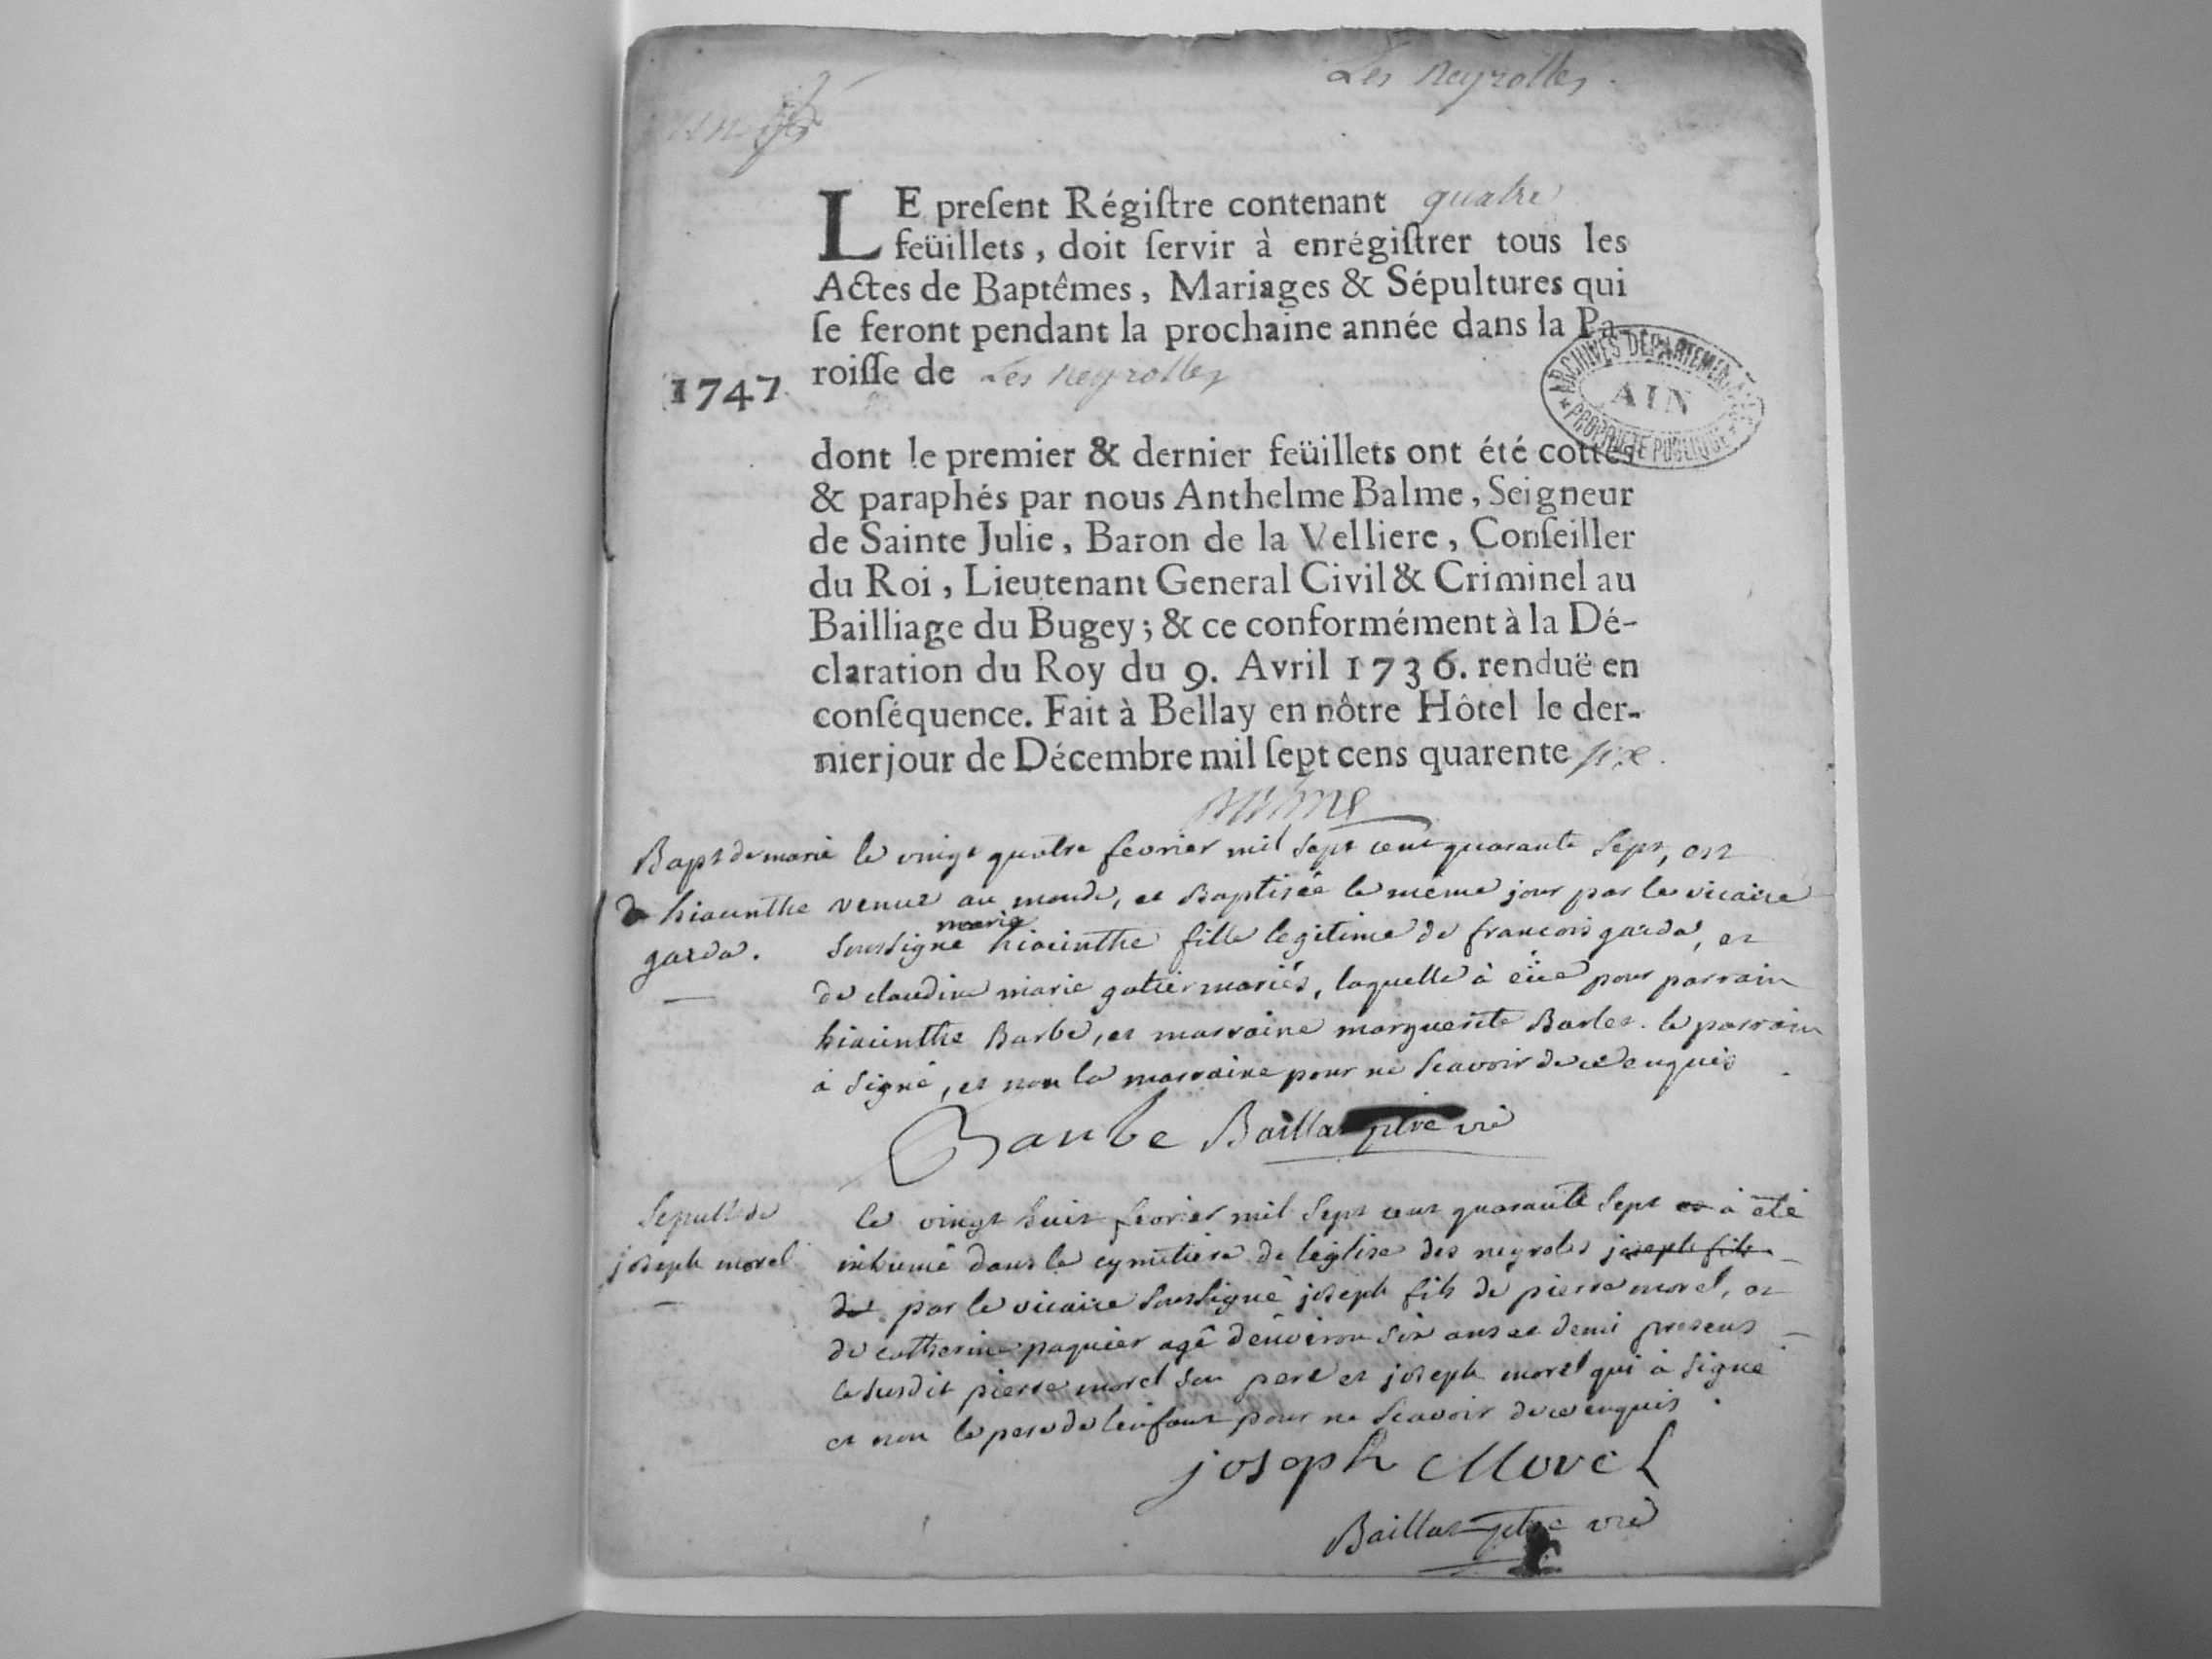 Les neyrolles
LE preſent Régiſtre contenant quatre
feüillets, doit ſervir à enrégiſtrer tous les
Actes de Baptêmes, Mariages & Sépultures qui
ſe feront pendant la prochaine année dans la Pa-
1747. roiſſe de Les neyrolles
ARCHIVES DEPARTEMENTALES
AIN
PROPRIETE PUBLIQUE
dont le premier & dernier feüillets ont été cottés
& paraphés par nous Anthelme Balme, Seigneur
de Sainte Julie, Baron de la Velliere, Conſeiller
du Roi, Lieutenant General Civil & Criminel au
Bailliage du Bugey; & ce conformément à la Dé-
claration du Roy du 9. Avril 1736. renduë en
conſéquence. Fait à Bellay en nôtre Hôtel le der-
nier jour de Décembre mil ſept cens quarente six.
Balme
Bapt de marie
hiacinthe
garda.
le vingt quatre fevrier mil sept cent quarante sept, est
venue au monde, et Baptisée le même jour par le vicaire
soussigné marie hiacinthe fille legitime de francois garda, et
de claudine marie gotier mariés, laquelle à eüe pour parrain
hiacinthe Barbe, et marraine marguerite Barlet. le parrain
à signé, et non la marraine pour ne scavoir de ce enquis
Barbe Baillat ptre vic
Sepult de
joseph morel
le vingt huit fevrier mil sept cent quarante sept à été
inhumé dans le cymetiere de l'eglise des neyroles joseph fils
de par le vicaire soussigné joseph fils de pierre morel, et
de catherine paquier agé d'environ six ans et demi presens
le susdit pierre morel son pere et joseph morel qui à signé
et non le pere de l'enfant pour ne scavoir de ce enquis.
joseph Morel
Baillat ptre vic